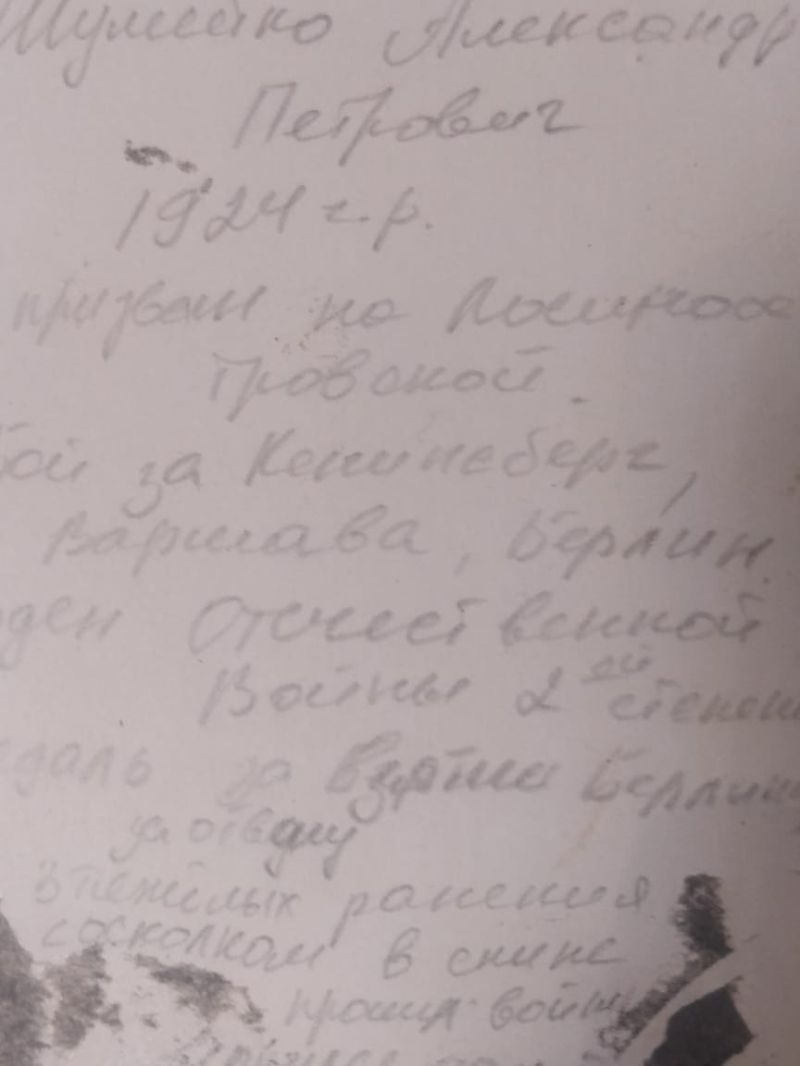 Шумейко Александр
Петрович
1924 г.р.
призван на
тровской.
бой за Кенинсберг,
Варшава, Берлин.
ден Отечественной
Войны 2ой степени
даль за Взятие Берлина
за отвагу
3 тежёлых ранения
с осколком в спине
прошел войну